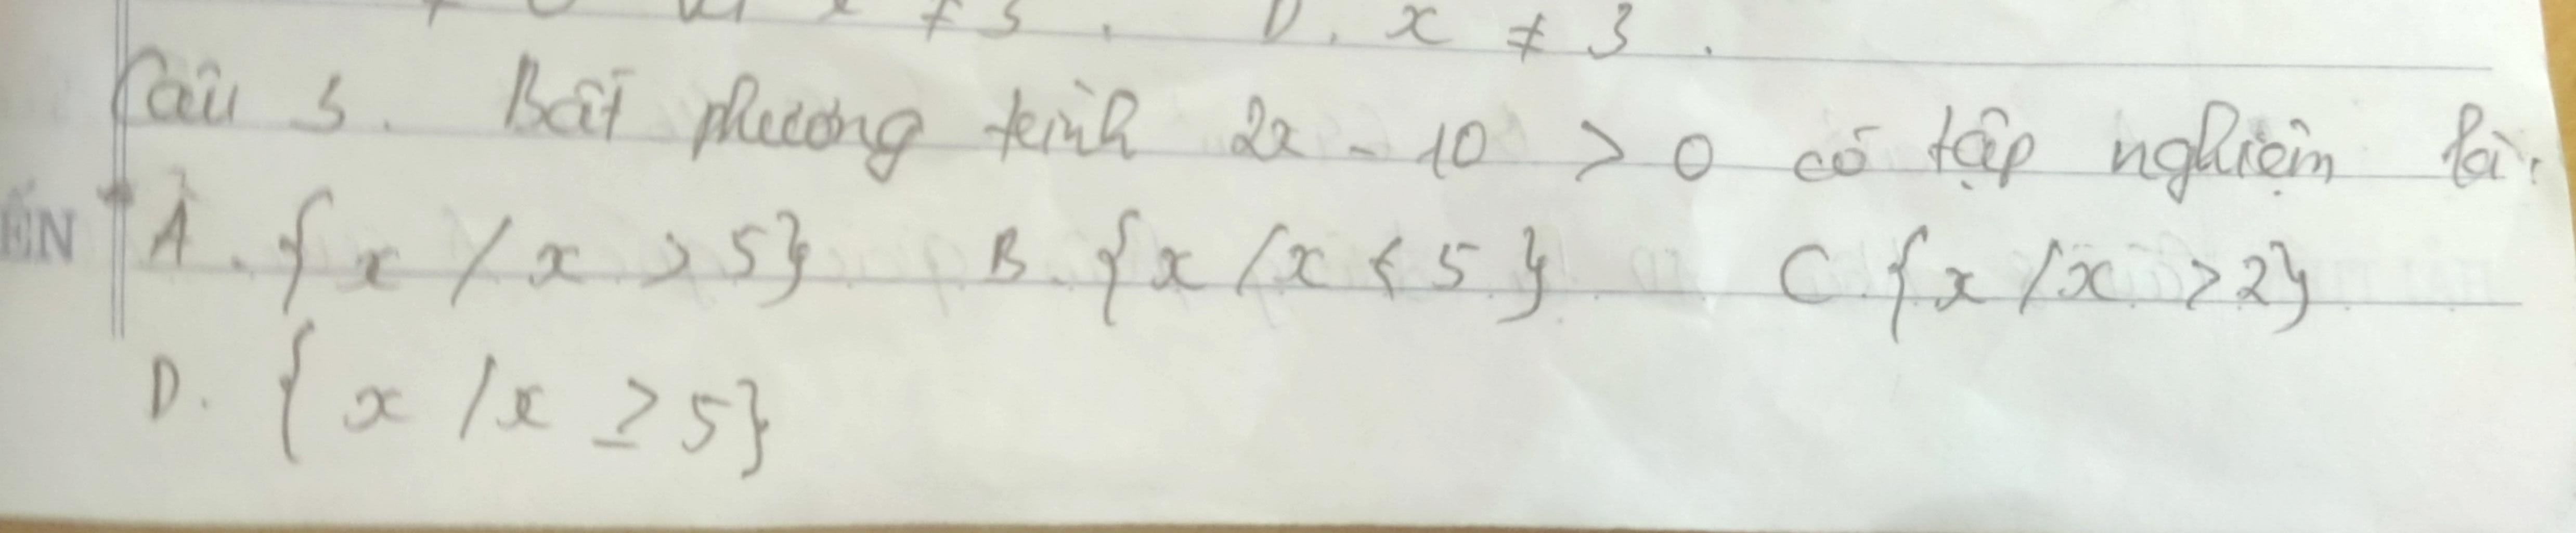 x ≠ 3 . D. x ≠ 3 .
Câu 3. Bất phương trình 2x - 10 > 0 có tập nghiệm là:
ÊN A. {x / x > 5} B. {x / x < 5} C {x / x > 2}
D. {x / x ≥ 5}